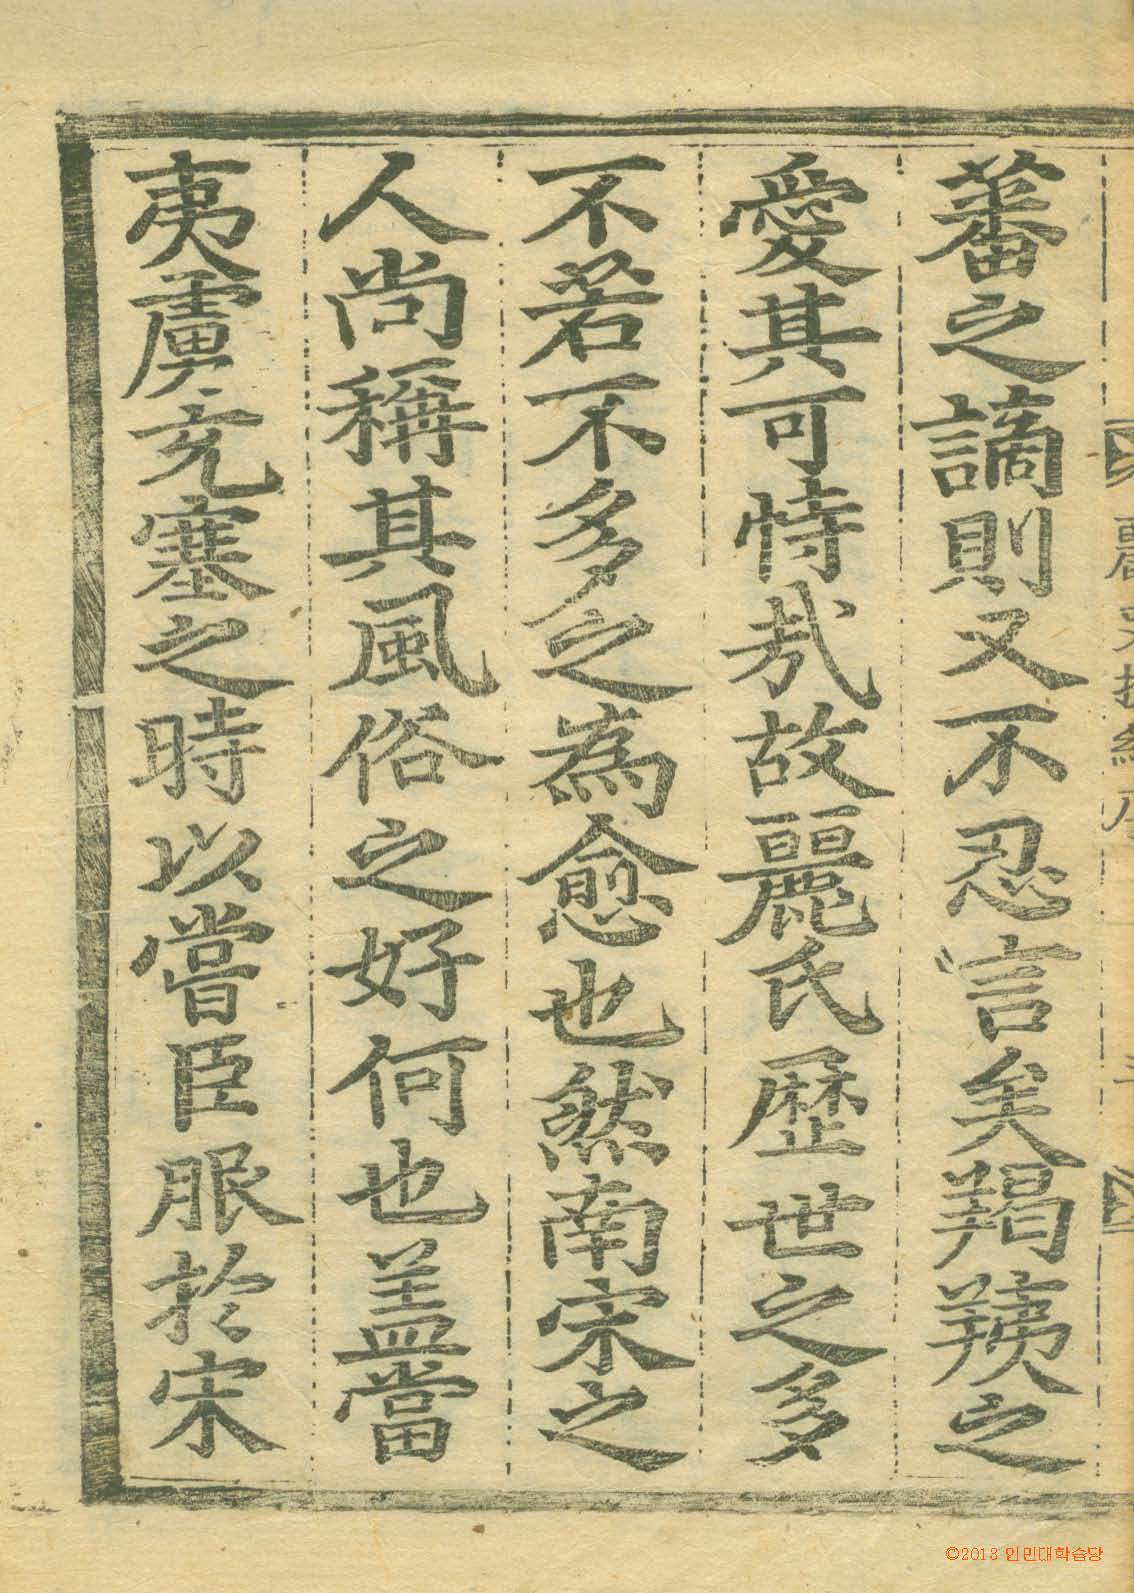 蕃之謫則又不忍言矣羯羠之
愛其可恃㢤故麗氏歷世之多
不若不多之為愈也然南宋之
人尚稱其風俗之好何也盖當
夷虜充塞之時以嘗臣服於宋
©2013 인민대학습당